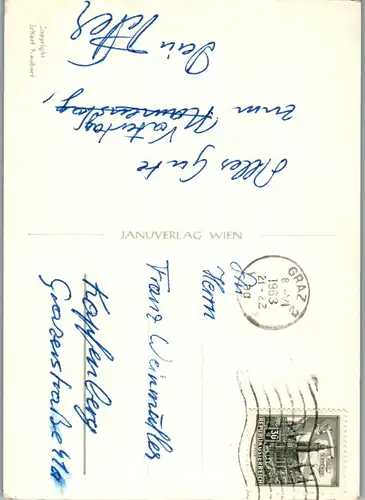 Alles Gute
zum Namenstag,
Vatertag,
Dein Peter
Copyright
JANUVERLAG WIEN
GRAZ 2
8.-VI
1963
21-22
An
Herrn
Franz Weinmüller
Kapfenberg
Grazerstraße 41a
30
REPUBLIK ÖSTERREICH